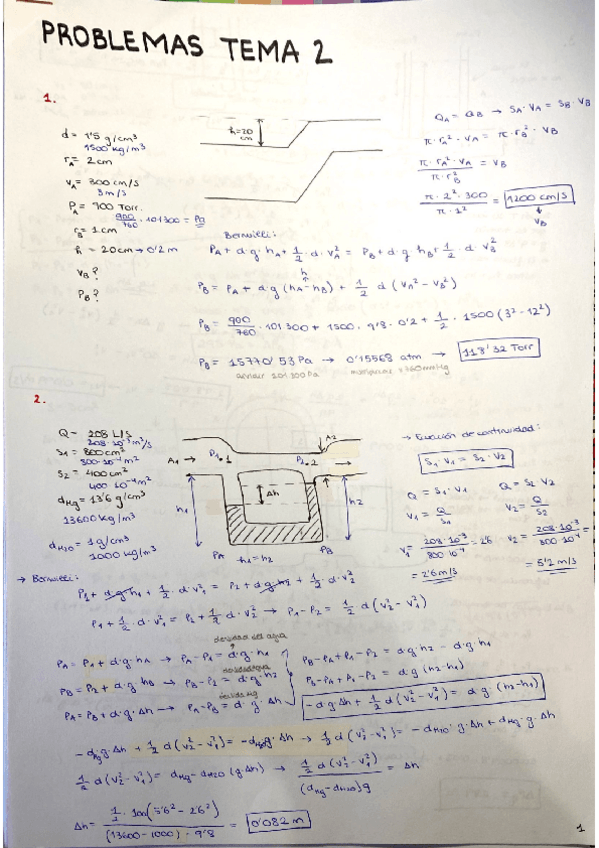 PROBLEMAS TEMA 2
1.
d = 1'5 g/cm³
1500 kg/m³
rA = 2cm
vA = 300 cm/s
3 m/s
PA = 900 Torr.
900/760 · 101300 = Pa
rB = 1 cm
h = 20cm → 0'2m
vB?
PB?
h=20cm
QA = QB → SA · VA = SB · VB
π · rA² · VA = π · rB² · VB
π · rA² · VA / π · rB² = VB
π · 2² · 300 / π · 1² = 1200 cm/s
VB
Bernuilli:
PA + d·g·hA + 1/2 · d · VA² = PB + d·g hB + 1/2 · d · VB²
h
PB = PA + d·g (hA - hB) + 1/2 d (VA² - VB²)
PB = 900/760 · 101300 + 1500 · 9'8 · 0'2 + 1/2 · 1500 (3² - 12²)
PB = 15770'53 Pa → 0'15568 atm → 118'32 Torr
dividir 101300Pa
multiplicar × 760mmHg
2.
Q = 208 L/s
208·10⁻³ m³/s
S1 = 800cm²
800·10⁻⁴ m²
S2 = 400cm²
400·10⁻⁴ m²
dHg = 13'6 g/cm³
13600 kg/m³
dH2O = 1 g/cm³
1000 kg/m³
A1 →
P1 · 1
P2 · 2
A2
Δh
h1
h2
PA
h1 = h2
PB
→ Ecuación de continuidad:
S1 V1 = S2 · V2
Q = S1 · V1
Q = S2 V2
V1 = Q/S1
V2 = Q/S2
V1 = 208·10⁻³ / 800·10⁻⁴ = 2'6
= 2'6 m/s
= 5'2 m/s
→ Bernuilli:
P1 + d·g·h1 + 1/2 · d · v1² = P2 + d·g·h2 + 1/2 · d · v2²
P1 + 1/2 · d · v1² = P2 + 1/2 d · v2² → P1 - P2 = 1/2 d (v2² - v1²)
densidad del agua
PA = P1 + d·g·hA → PA - P1 = d·g·h1
densidad agua
PB = P2 + d·g·hB → PB - P2 = d·g·h2
densidad Hg
PA = PB + d·g·Δh → PA - PB = d·g·Δh
PB - PA + P1 - P2 = d·g·h2 - d·g·h1
PB - PA + P1 - P2 = d·g (h2 - h1)
- d·g·Δh + 1/2 d (v2² - v1²) = d·g·(h2 - h1)
1/2 d (v2² - v1²) = dHg - dH2O (g·Δh) → 1/2 d (v2² - v1²) / (dHg - dH2O) g = Δh
Δh = / (13600 - 1000) · 9'8 = 0'082 m
1